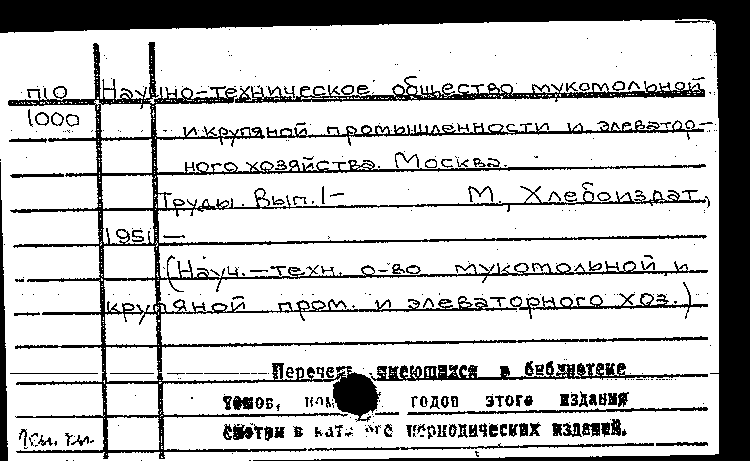 П10 Научно-техническое общество мукомольной
1000 и крупяной промышленности и элеватор-
ного хозяйства. Москва.
Труды. Вып. 1- М., Хлебоиздат,
1951 —
(Науч.-техн. о-во мукомольной и
крупяной пром. и элеваторного хоз.)
Перечень имеющихся в библиотеке
томов, годов этого издания
смотри в периодических изданий.